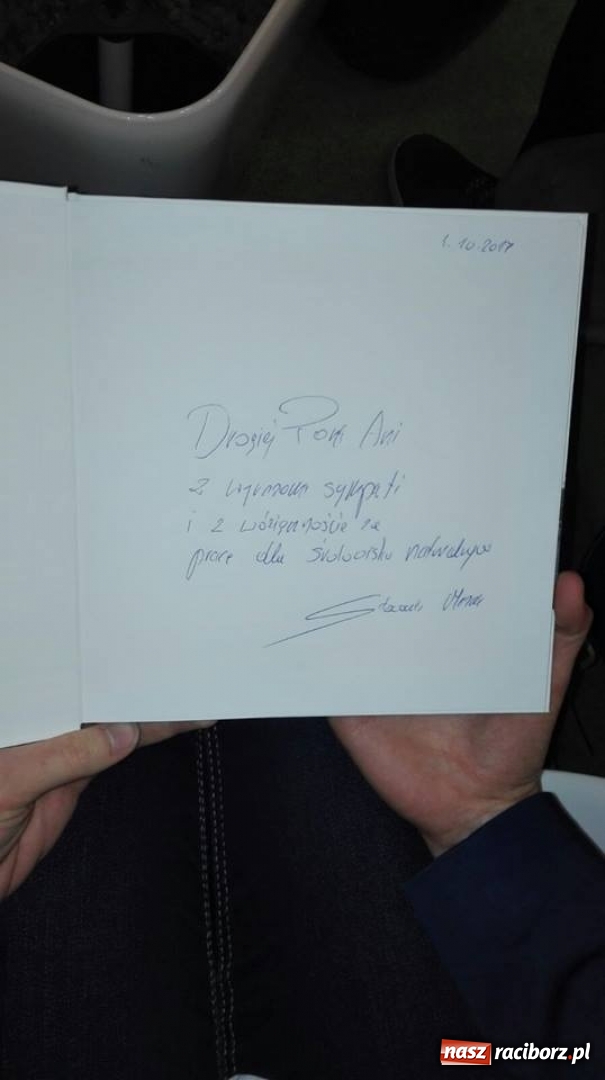 1.10.2017
Drogiej Pani Ani
z wyrazami sympatii
i z wdzięcznością za
pracę dla środowiska
nasz raciborz.pl